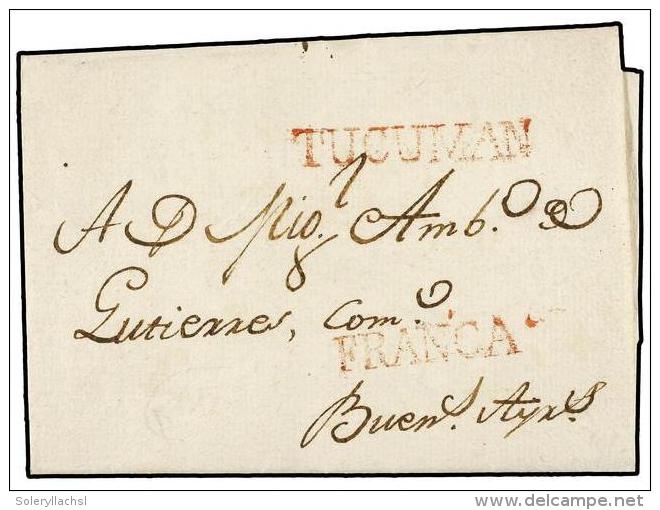 TUCUMAN
A D Mig.l Amb.o
Gutierres, Com.o
FRANCA
Buen.s Ayr.s
Soleryllachsl
delcampe.net